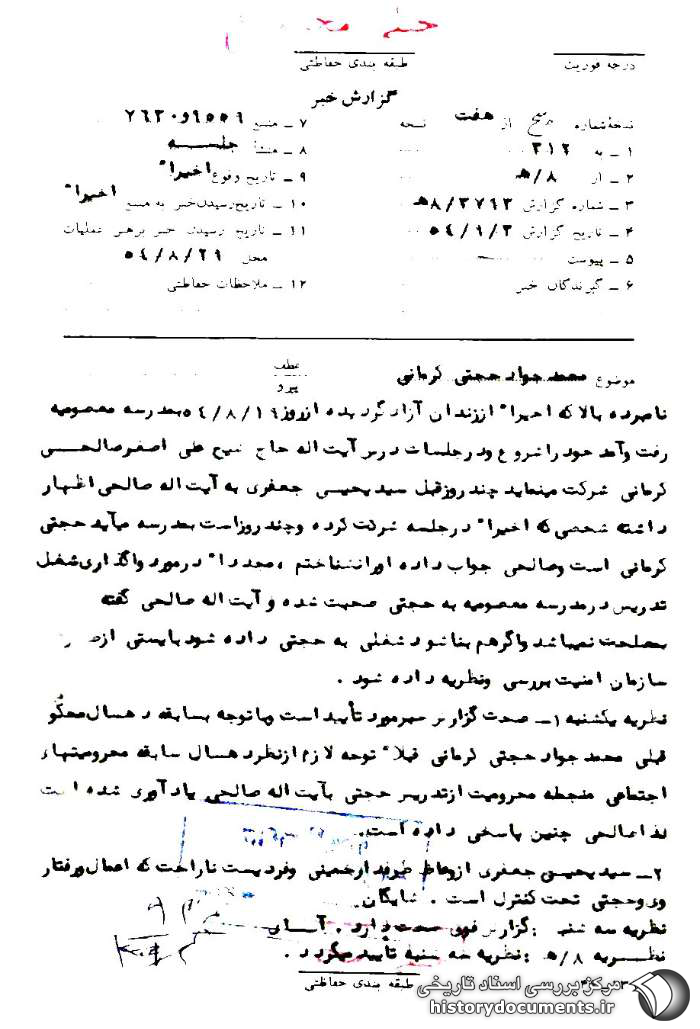 درجه فوریت
طبقه بندی حفاظتی
گزارش خبر
نسخه شماره پنج از هفت نسخه
۱ ـ به ۳۱۲
۲ ـ از ۸/هـ
۳ ـ شماره گزارش ۸/۳۷۶۳هـ
۴ ـ تاریخ گزارش ۵۴/۹/۲
۵ ـ پیوست
۶ ـ گیرندگان خبر
۷ ـ منبع ۹۵۵۹و۷۶۳۰
۸ ـ منشأ جلسه
۹ ـ تاریخ وقوع اخیرا"
۱۰ ـ تاریخ رسیدن خبر به منبع اخیرا"
۱۱ ـ تاریخ رسیدن خبر برهبر عملیات
محل ۵۴/۸/۲۹
۱۲ ـ ملاحظات حفاظتی
موضوع محمد جواد حجتی کرمانی
عطف
پیرو
نامبرده بالا که اخیرا" اززندان آزاد گردیده ازروز ۵۴/۸/۱۹ بمدرسه معصومیه
رفت وآمد خود راشروع ودر جلسات درس آیت اله حاج شیخ علی اصغر صالحی
کرمانی شرکت مینماید چند روزقبل سید یحیی جعفری به آیت اله صالحی اظهار
داشته شخصی که اخیرا" درجلسه شرکت کرده وچند روزاست بمدرسه میآید حجتی
کرمانی است وصالحی جواب داده اورانشناختم ، مجددا" درمورد واگذاری شغل
تدریس درمدرسه معصومیه به حجتی صحبت شده و آیت اله صالحی گفته
مصلحت نمیباشد واگرهم بناشود شغلی به حجتی داده شود بایستی از
سازمان امنیت بررسی ونظریه داده شود .
نظریه یکشنبه ۱ـ صحت گزارش مورد تأیید است وباتوجه بسابقه دهسال محکو
قبلی محمد جواد حجتی کرمانی قبلا" توجه لازم ازنظر دهسال سابقه محرومیتهای
اجتماعی منجمله محرومیت ازتدریس حجتی بآیت اله صالحی یادآوری شده است
لذا صالحی چنین پاسخی داده است.
۲ـ سید یحیی جعفری ازوعاظ طرفدارخمینی وفردیست ناراحت که اعمال ورفتار
وی وحجتی تحت کنترل است . شایگان
نظریه سه شنبه : گزارش فوق صحت دارد . آسای
نظریه ۸/هـ : نظریه سه شنبه تأیید میگردد .
طبقه بندی حفاظتی
مرکز بررسی اسناد تاریخی
historydocuments.ir